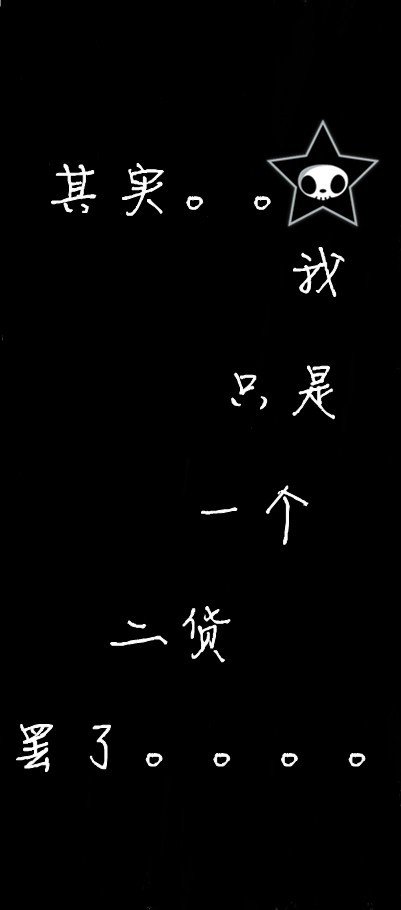 其实。。
我
只是
一个
二货
罢了。。。。